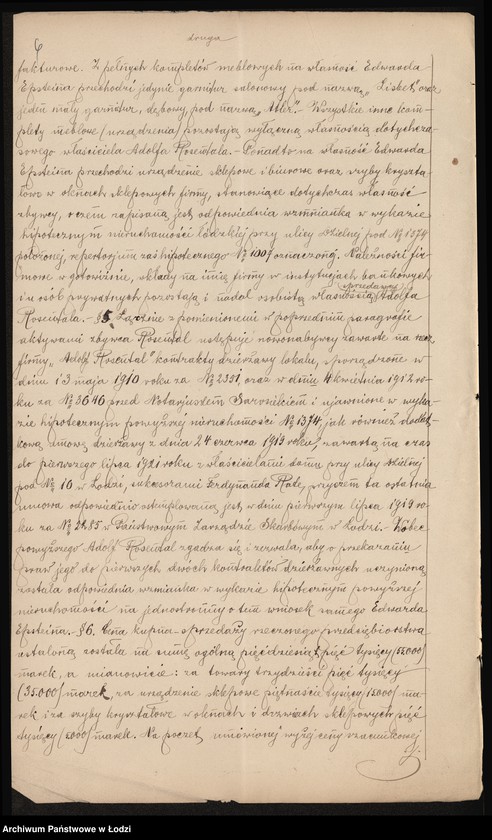 druga
fakturowe. Z pełnych kompletów meblowych na własność Edwarda
Epsteina przechodzi jedynie garnitur salonowy pod nazwą oraz
jeden mały garnitur, dębowy, pod nazwą „Adler”. – Wszystkie inne kom-
plety meblowe /urządzenia/ pozostają wyłączną własnością dotychcza-
sowego właściciela Adolfa Rosentala. – Ponadto na własność Edwarda
Epsteina przechodzi urządzenie sklepowe i biurowe oraz szyby kryszta-
łowe w oknach sklepowych firmy, stanowiące dotychczas własność
zbywcy, o czem zapisaną jest odpowiednia wzmianka w wykazie
hipotecznym nieruchomości łódzkiej przy ulicy Dzielnej pod № 1374
położonej, repertorjum zaś hipotecznego № 1009 oznaczonej. Należności fir-
mowe w gotowiźnie, składy na imię firmy w instytucjach bankowych
i u osób prywatnych pozostają i nadal osobistą własnością sprzedawcy Adolfa
Rosentala. – §5. Łącznie z pomienionemi w poprzednim paragrafie
aktywami zbywca Rosental ustępuje nowonabywcy zawarte na rzecz
firmy „Adolf Rosental” kontrakty dzierżawy lokalu, sporządzone w
dniu 13 maja 1910 roku za № 2351, oraz w dniu 4 kwietnia 1912 ro-
ku za № 3646 przed Notarjuszem i ujawnione w wyka-
zie hipotecznym powyższej nieruchomości № 1374, jak również dodat-
kową umowę dzierżawy z dnia 24 czerwca 1919 roku, zawartą na czas
do pierwszego lipca 1921 roku z właścicielami domu przy ulicy Dzielnej
pod № 10 w Łodzi, sukcesorami Ferdynanda przyczem ta ostatnia
umowa odpowiednio ostemplowaną jest w dniu pierwszym lipca 1919 ro-
ku za № 2485 w Państwowym Zarządzie Skarbowym w Łodzi. – Wobec
powyższego Adolf Rosental zgadza się i zezwala, aby o przekazaniu
praw jego do pierwszych dwóch kontraktów dzierżawnych uczynioną
została odpowiednia wzmianka w wykazie hipotecznym powyższej
nieruchomości na jednostronny o tem wniosek samego Edwarda
Epsteina. – §6. Cena kupna-sprzedaży rzeczonego przedsiębiorstwa
ustaloną została na sumę ogólną pięćdziesiąt pięć tysięcy (55000)
marek, a mianowicie: za towary trzydzieści pięć tysięcy
(35.000) marek, za urządzenie sklepowe piętnaście tysięcy (15000) ma-
rek i za szyby kryształowe w oknach i drzwiach sklepowych pięć
tysięcy (5000) marek. Na poczet umówionej wyżej ceny szacunkowej
Archiwum Państwowe w Łodzi